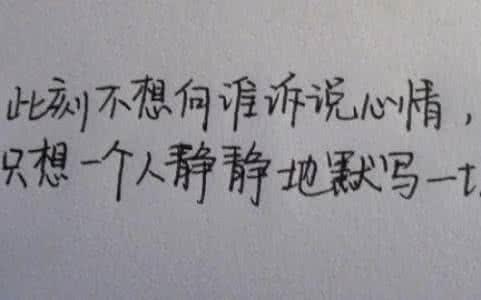 此刻不想向谁诉说心情，
只想一个人静静地默写一